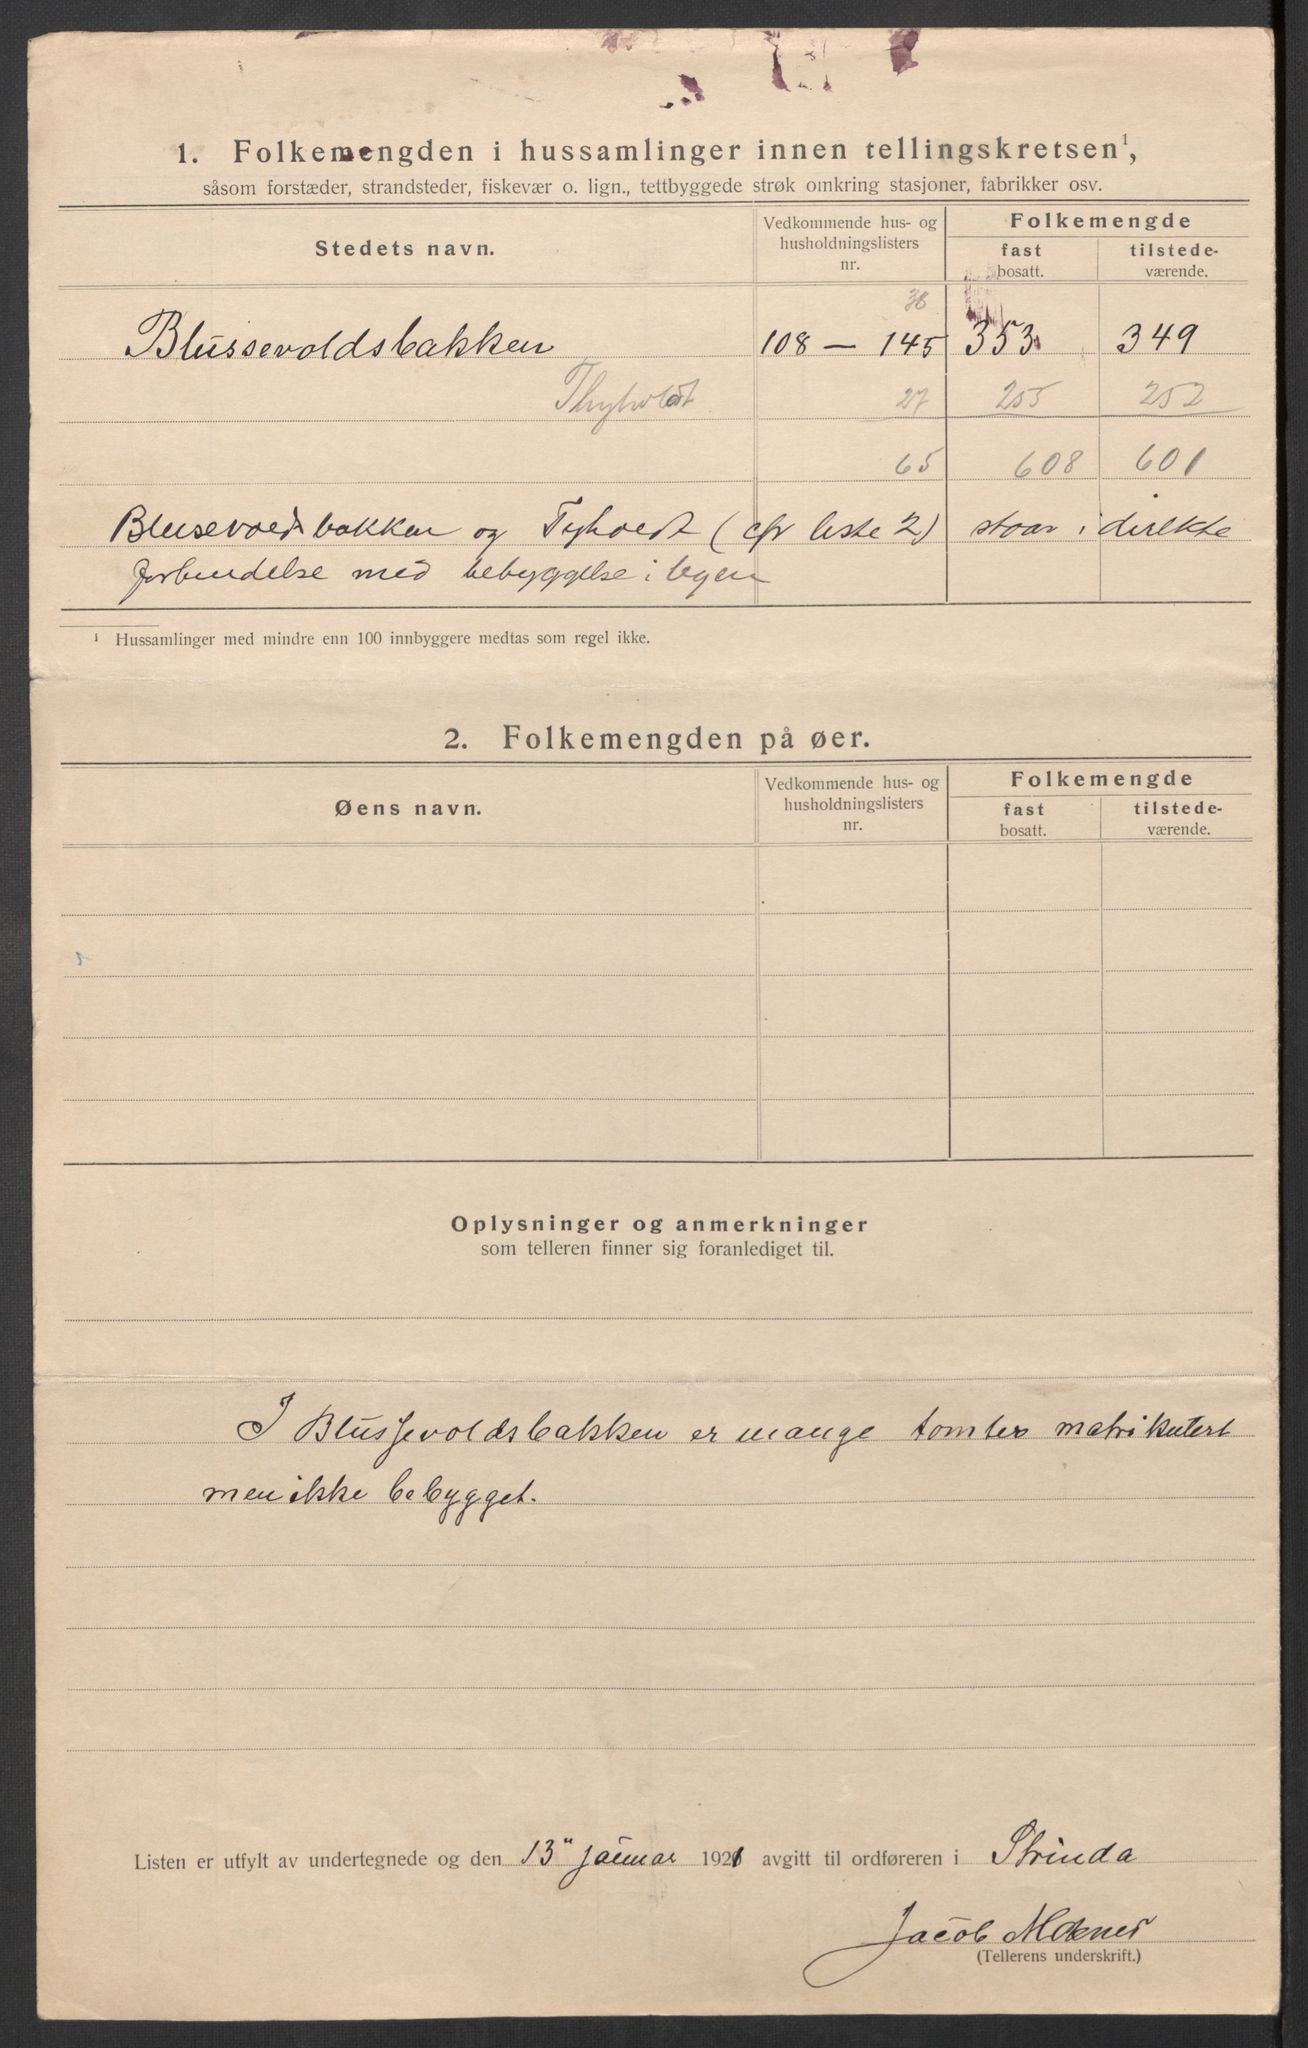 1. Folkemengden i hussamlinger innen tellingskretsen¹,
såsom forstæder, strandsteder, fiskevær o. lign., tettbyggede strøk omkring stasjoner, fabrikker osv.
Stedets navn.
Vedkommende hus- og husholdningslisters nr.
Folkemengde
fast bosatt.
tilstede-værende.
38
Blussevoldsbakken 108 — 145 353 349
Thyholdt 27 255 252
65 608 601
Blusevoldsbakken og Tyholdt (cfr liste 2) staar i direkte
forbindelse med bebyggelse i byen
¹ Hussamlinger med mindre enn 100 innbyggere medtas som regel ikke.
2. Folkemengden på øer.
Øens navn.
Vedkommende hus- og husholdningslisters nr.
Folkemengde
fast bosatt.
tilstede-værende.
Oplysninger og anmerkninger
som telleren finner sig foranlediget til.
I Blussevoldsbakken er mange tomter matrikulert
men ikke bebygget.
Listen er utfylt av undertegnede og den 13" januar 1921 avgitt til ordføreren i Strinda
Jacob
(Tellerens underskrift.)